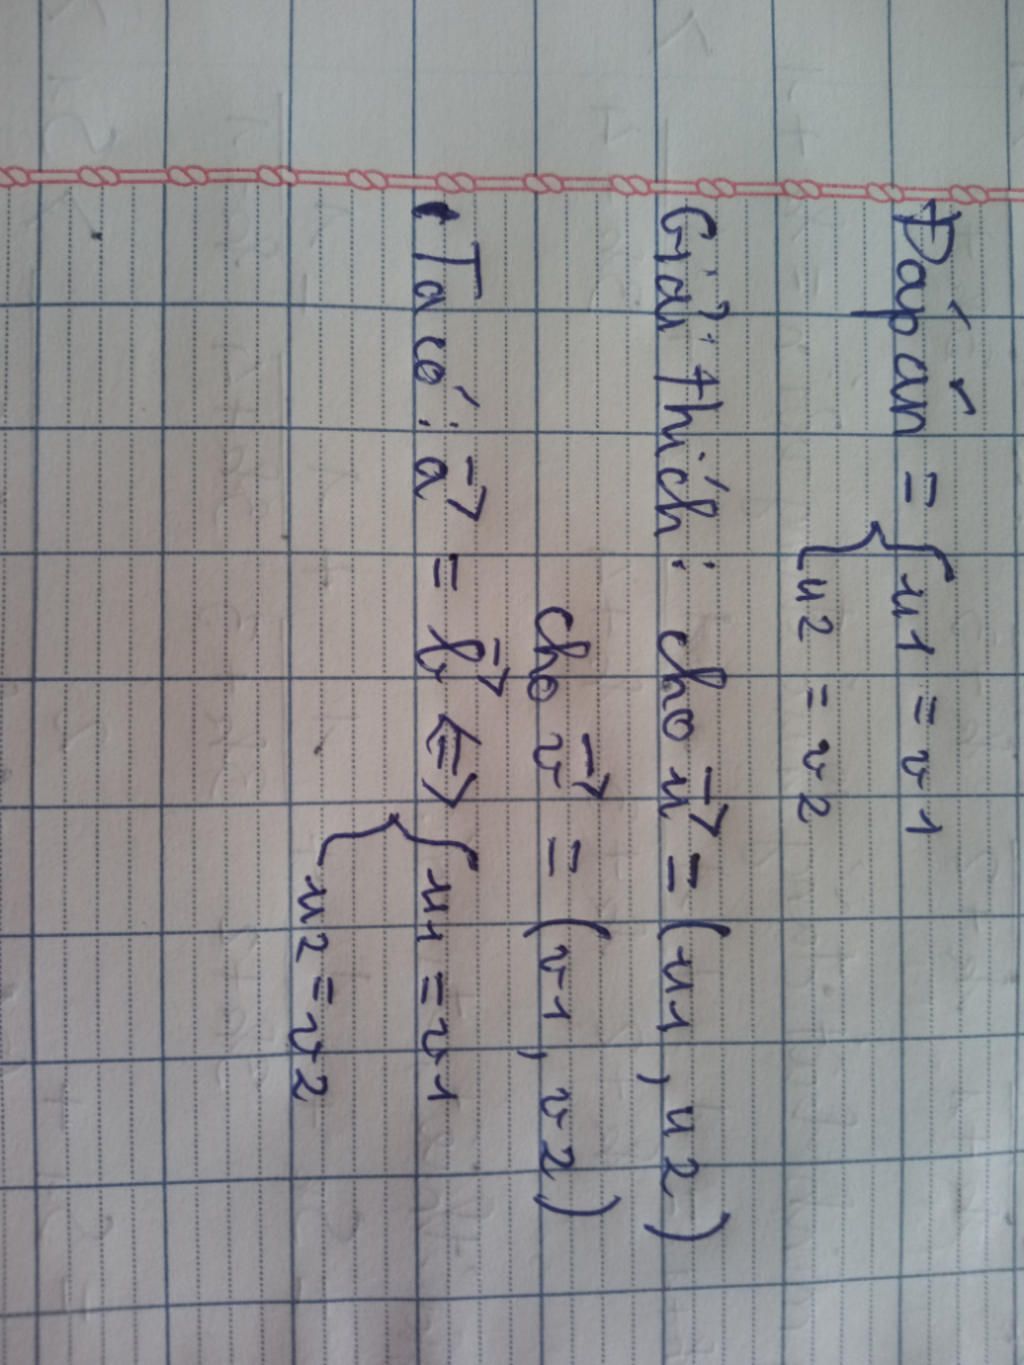 Đáp án = { u1 = v1
u2 = v2
Giải thích : cho u→ = (u1 , u2)
cho v→ = (v1 , v2)
Ta có : a→ = b→ <=> { u1 = v1
u2 = v2